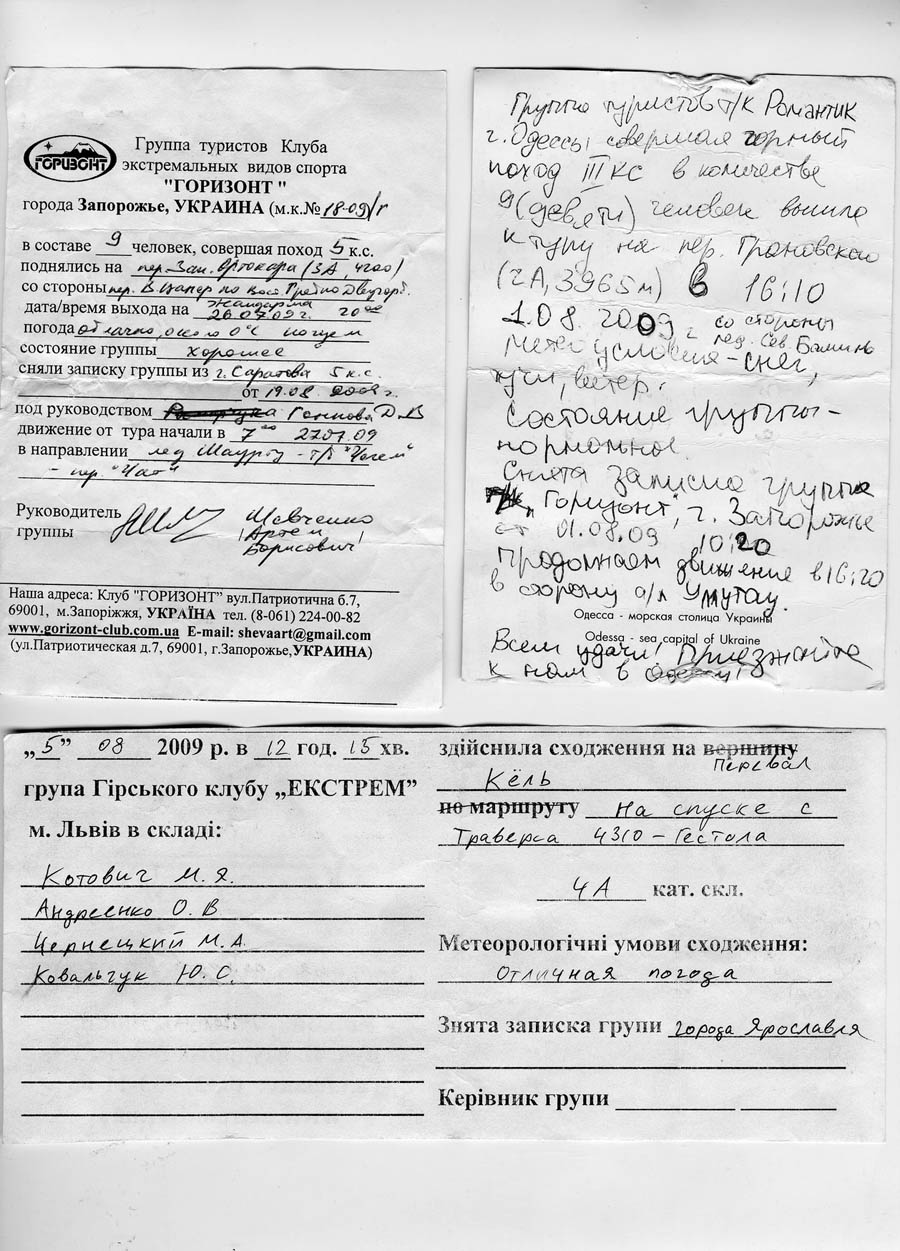 ГОРИЗОНТ
Группа туристов Клуба
экстремальных видов спорта
"ГОРИЗОНТ "
города Запорожье, УКРАИНА (м.к.№ 18-09/г
в составе 9 человек, совершая поход 5 к.с.
поднялись на пер. Зап. Ортокара (3А, 4200)
со стороны пер. В. Цапер по вост. гребню Двугорб.
жандарма
дата/время выхода на 26.07.09 г. 20 00
погода облачно, около 0°С
состояние группы хорошее
сняли записку группы из г. Саратова 5 к.с.
от 19.08.2008 г.
под руководством Д.В
движение от тура начали в 7 00 27.07.09
в направлении лед. - т/б "Чегем"
- пер. "Чат"
Руководитель Шевченко
группы Артем
Борисович
Наша адреса: Клуб "ГОРИЗОНТ" вул.Патриотична б.7,
69001, м.Запоріжжя, УКРАЇНА тел. (8-061) 224-00-82
www.gorizont-club.com.ua E-mail: shevaart@gmail.com
(ул.Патриотическая д.7, 69001, г.Запорожье,УКРАИНА)
Группа туристов т/к Романтик
г. Одессы совершая горный
поход III КС в количестве
9 (девяти) человек вышла
к туру на пер. Грановского
(2А, 3965м) в 16:10
1.08.2009 г. со стороны
лед. Сев. Башиль
Метеоусловия - снег,
ветер.
Состояние группы -
нормальное.
Снята записка группы
"Горизонт", г. Запорожье
от 01.08.09 10:20
Продолжаем движение в 16:20
в сторону а/л Умутау.
Одесса - морская столица Украины
Odessa - sea capital of Ukraine
Всем удачи! Приезжайте
к нам в Одессу!
„5” 08 2009 р. в 12 год. 15 хв.
група Гірського клубу „ЕКСТРЕМ”
м. Львів в складі:
Котович М.Я.
Андреенко О.В
Чернецкий М.А.
Ковальчук Ю.С.
здійснила сходження на вершину
перевал
Кёль
по маршруту На спуске с
Траверса 4310 – Гестола
4А кат. скл.
Метеорологічні умови сходження:
Отличная погода
Знята записка групи города Ярославля
Керівник групи